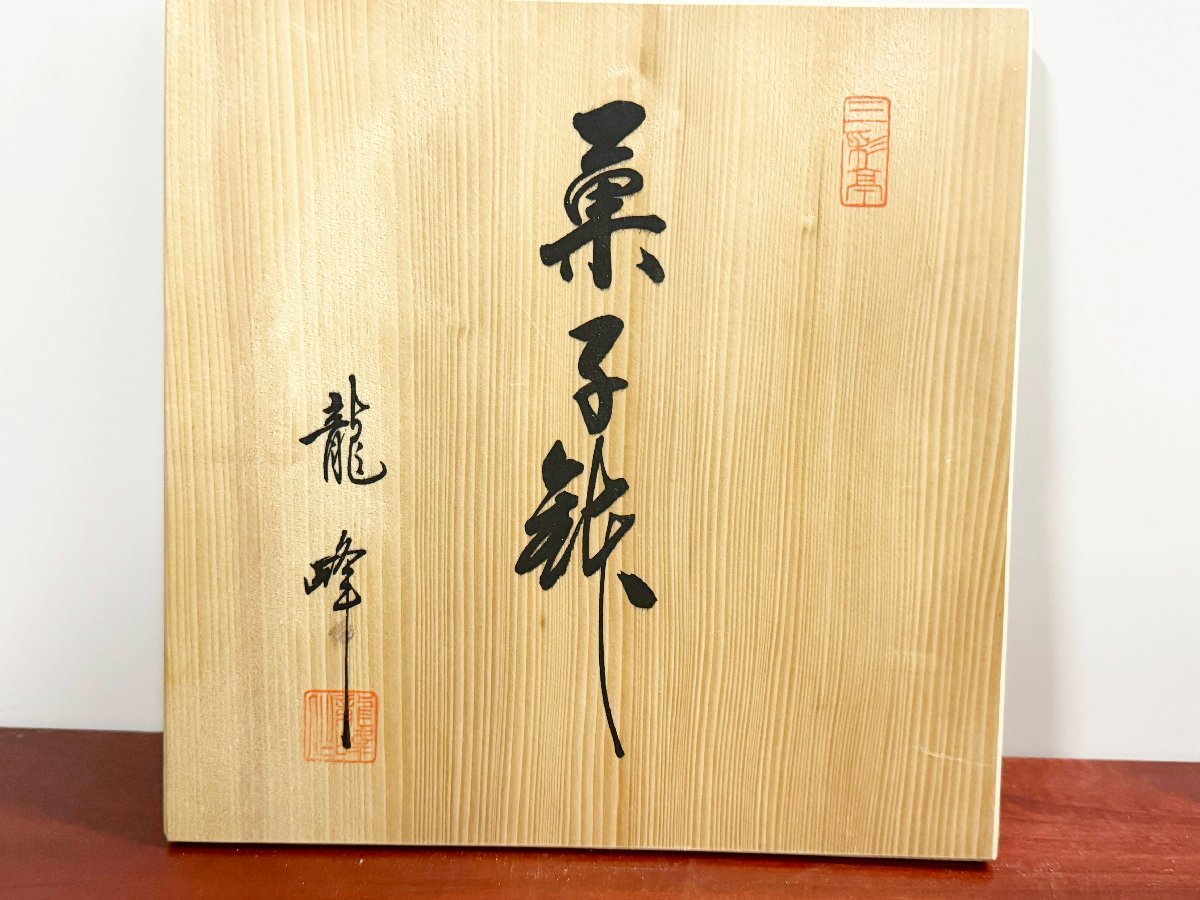 三彩亭
菓子鉢
龍峰